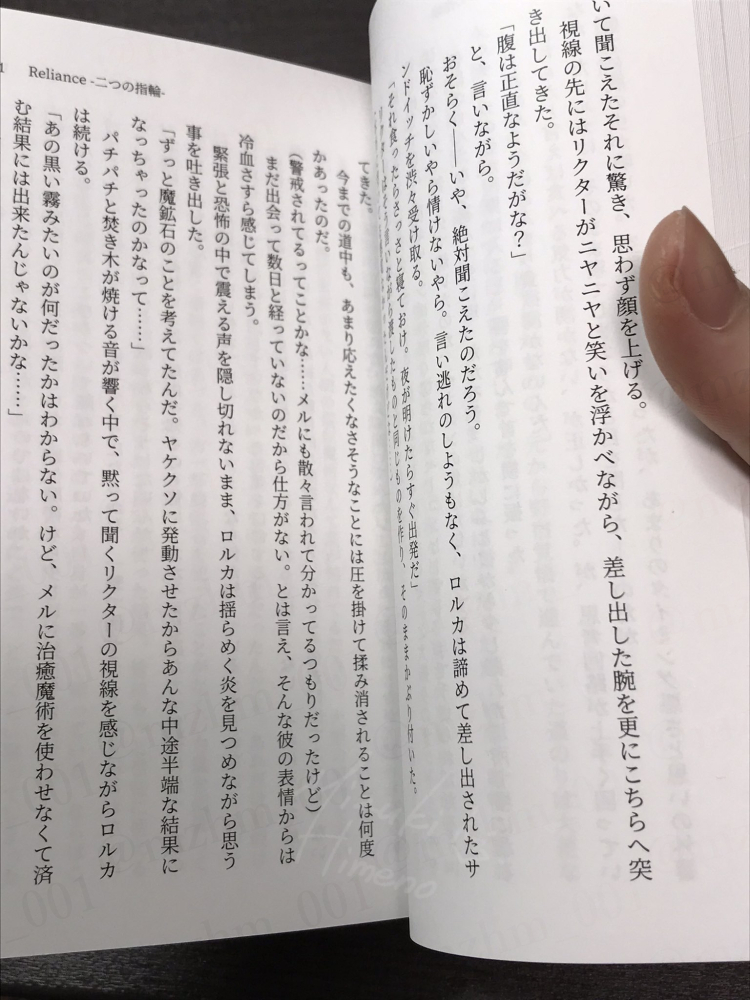 いて聞こえたそれに驚き、思わず顔を上げる。
視線の先にはリクターがニヤニヤと笑いを浮かべながら、差し出した腕を更にこちらへ突
き出してきた。
「腹は正直なようだがな？」
と、言いながら。
おそらく――いや、絶対聞こえたのだろう。
恥ずかしいやら情けないやら。言い逃れのしようもなく、ロルカは諦めて差し出されたサ
ンドイッチを渋々受け取る。
「それ食ったらさっさと寝ておけ。夜が明けたらすぐ出発だ」
リクターはそう言いながら渡したものと同じものを作り、そのままかぶり付いた。
1 Reliance -二つの指輪-
てきた。
今までの道中も、あまり応えたくなさそうなことには圧を掛けて揉み消されることは何度
かあったのだ。
(警戒されてるってことかな……メルにも散々言われて分かってるつもりだったけど)
まだ出会って数日と経っていないのだから仕方がない。とは言え、そんな彼の表情からは
冷血さすら感じてしまう。
緊張と恐怖の中で震える声を隠し切れないまま、ロルカは揺らめく炎を見つめながら思う
事を吐き出した。
「ずっと魔鉱石のことを考えてたんだ。ヤケクソに発動させたからあんな中途半端な結果に
なっちゃったのかなって……」
パチパチと焚き木が焼ける音が響く中で、黙って聞くリクターの視線を感じながらロルカ
は続ける。
「あの黒い霧みたいのが何だったかはわからない。けど、メルに治癒魔術を使わせなくて済
む結果には出来たんじゃないかな……」
Mizuki Himeno
_001